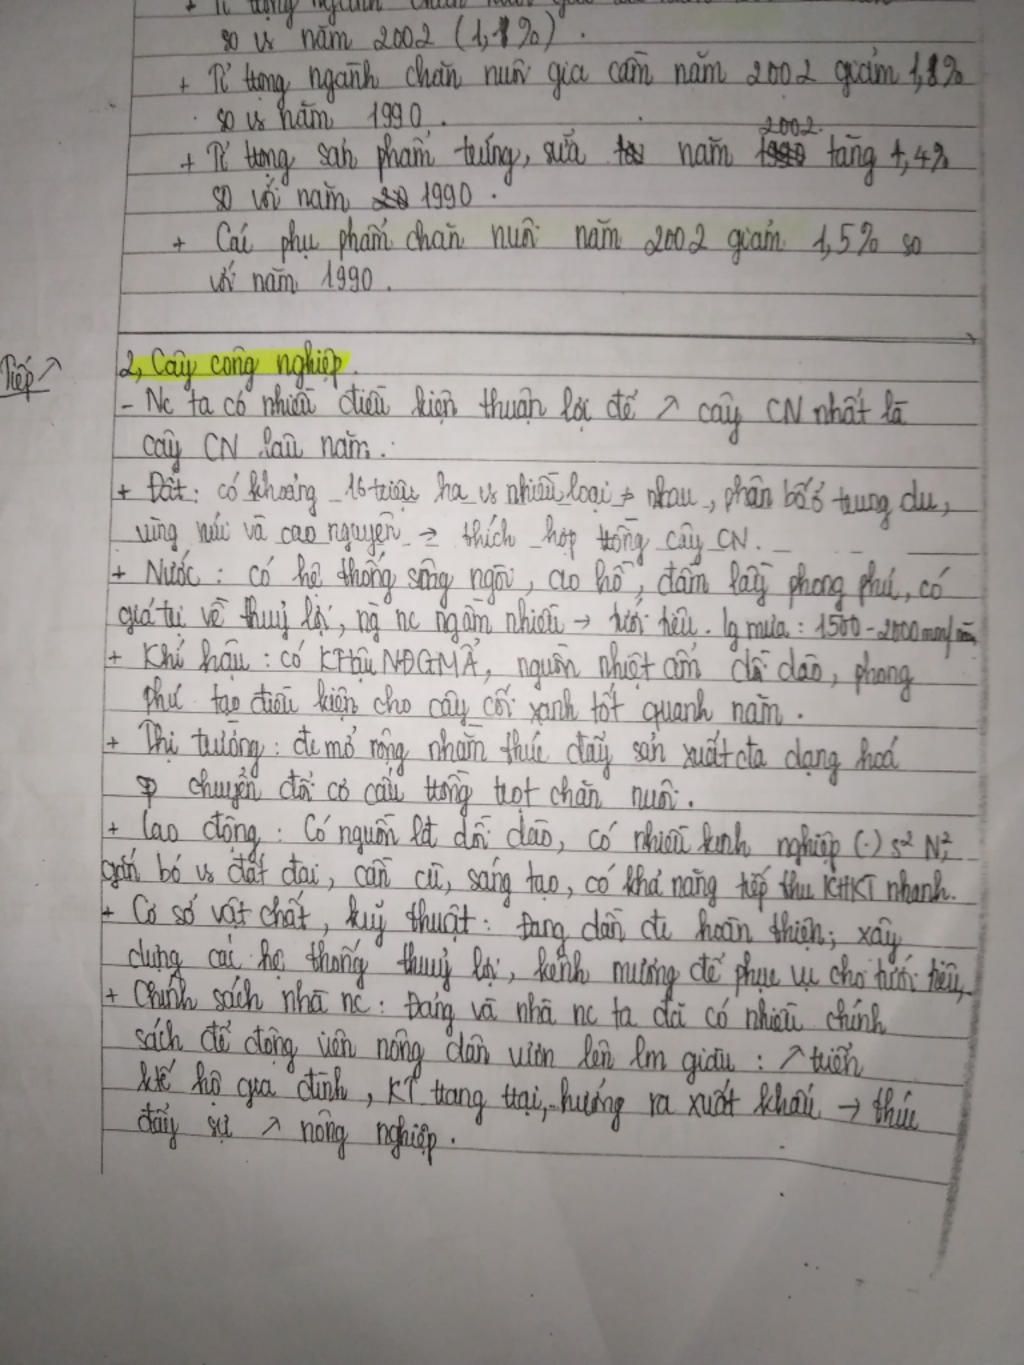 + Tỉ trọng ngành chăn nuôi gia
so vs năm 2002 (1,1%).
+ Tỉ trọng ngành chăn nuôi gia cầm năm 2002 giảm 1,8%
so vs năm 1990.
2002.
+ Tỉ trọng sản phẩm trứng, sữa năm 1990 tăng 1,4%
so với năm 20 1990.
+ Các phụ phẩm chăn nuôi năm 2002 giảm 1,5% so
với năm 1990.
Tiếp ↗
2, Cây công nghiệp.
- Nc ta có nhiều điều kiện thuận lợi để ↗ cây CN nhất là
cây CN lâu năm.
+ Đất: có khoảng 16 triệu ha vs nhiều loại ≠ nhau, phân bố ở trung du,
vùng núi và cao nguyên → thích hợp trồng cây CN.
+ Nước: có hệ thống sông ngòi, ao hồ, đầm lầy phong phú, có
giá trị về thuỷ lợi, ng nc ngầm nhiều → tưới tiêu. lg mưa: 1500-2000mm/năm
+ Khí hậu: có KHậu NĐGMÂ, nguồn nhiệt ẩm dồi dào, phong
phú tạo điều kiện cho cây cối xanh tốt quanh năm.
+ Thị trường: đc mở rộng nhằm thúc đẩy sản xuất đa dạng hoá
sp chuyển đổi cơ cấu trồng trọt chăn nuôi.
+ Lao động: Có nguồn lđ dồi dào, có nhiều kinh nghiệp (·) s² N²,
gắn bó vs đất đai, cần cù, sáng tạo, có khả năng tiếp thu KHKT nhanh.
+ Cơ sở vật chất, kuỹ thuật: Đang dần đc hoàn thiện; xây
dựng các hệ thống thuỷ lợi, kênh mương để phục vụ cho tưới tiêu.
+ Chính sách nhà nc: Đảng và nhà nc ta đã có nhiều chính
sách để động viên nông dân vươn lên lm giàu: ↗ triển
ktế hộ gia đình, KT trang trại, hướng ra xuất khẩu → thúc
đẩy sự ↗ nông nghiệp.